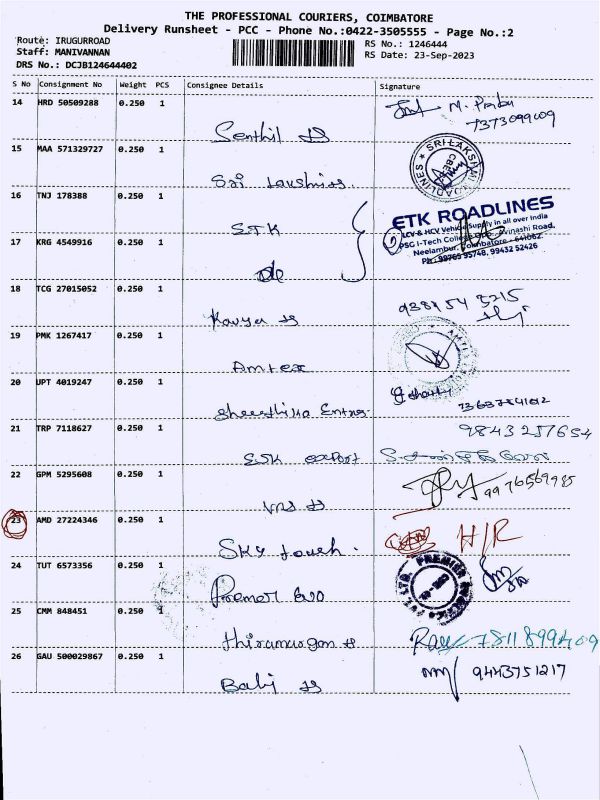 THE PROFESSIONAL COURIERS, COIMBATORE
Delivery Runsheet - PCC - Phone No.:0422-3505555 - Page No.:2
Route: IRUGURROAD
Staff: MANIVANNAN
DRS No.: DCJB124644402
RS No.: 1246444
RS Date: 23-Sep-2023
S No Consignment No Weight PCS Consignee Details Signature
14 HRD 50509288 0.250 1
Senthil
M. Prabu
7373099009
15 MAA 571329727 0.250 1
Sri
SRI LAKSHMI ROADLINES
CBE
16 TNJ 178388 0.250 1
STK
ETK ROADLINES
LCV & HCV Vehicle Supply in all over India
PSG I-Tech College Avinashi Road,
Neelambur, Coimbatore - 641062.
Ph: 99765 95748, 99432 52426
17 KRG 4549916 0.250 1
do
18 TCG 27015052 0.250 1
Kavya
19 PMK 1267417 0.250 1
Amtex
20 UPT 4019247 0.250 1
21 TRP 7118627 0.250 1
SSK export
9843257654
22 GPM 5295608 0.250 1
9976569985
23 AMD 27224346 0.250 1
Sky touch.
H/R
24 TUT 6573356 0.250 1
Premer
PREMIER
25 CMM 848451 0.250 1
thiramurgan
7811899409
26 GAU 500029867 0.250 1
Babj
9443751217